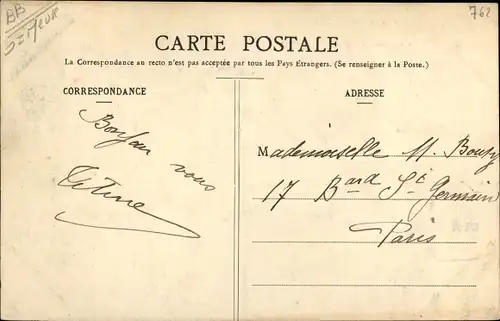 BB
762
CARTE POSTALE
La Correspondance au recto n'est pas acceptée par tous les Pays Étrangers. (Se renseigner à la Poste.)
CORRESPONDANCE
Bonjour
vous
Titine
ADRESSE
Mademoiselle M. Bouty
17 Bard St Germain
Paris